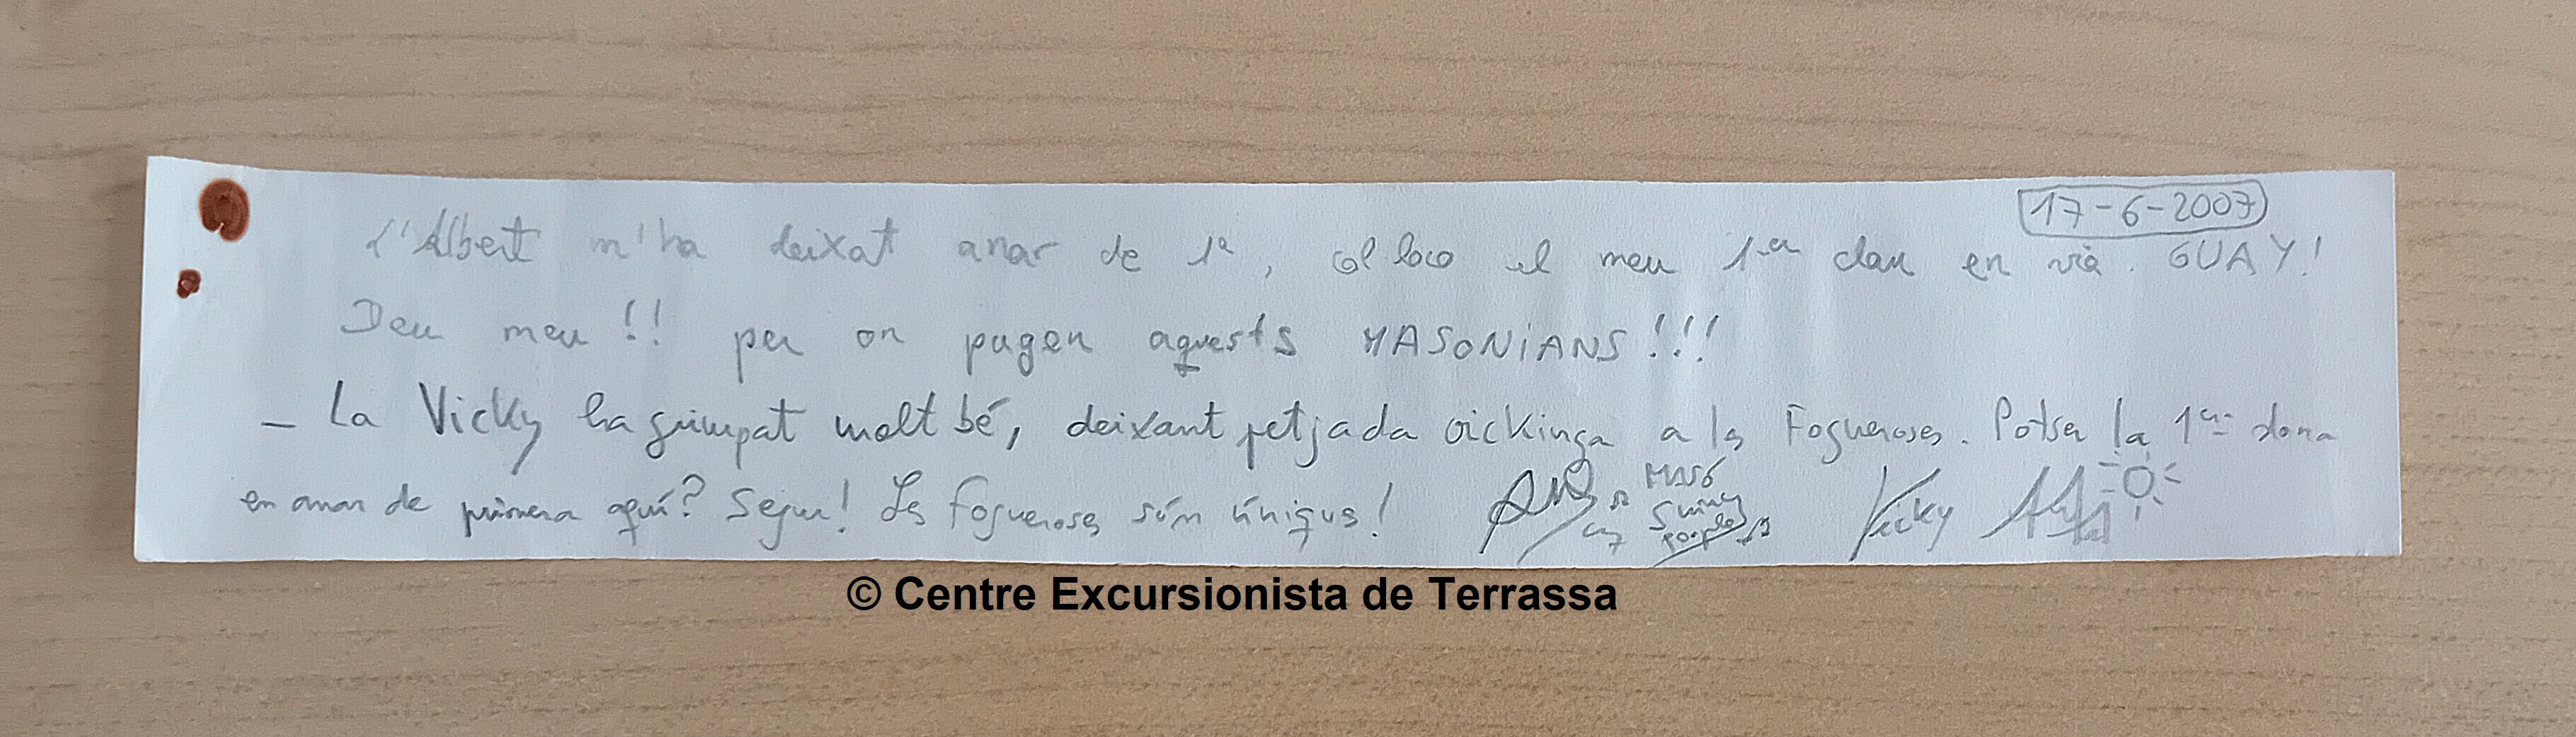 17-6-2007
L'Albert m'ha deixat anar de 1ª, col·loco el meu 1er clau en via. GUAY!
Deu meu!! per on pugen aquests MASONiANS!!!
- La Vicky ha grimpat molt bé, deixant petjada vickinga a les Fogueroses. Potser la 1era dona
en anar de primera aquí? Segur! Les Fogueroses són úniques!
MASÓ
Vicky
© Centre Excursionista de Terrassa